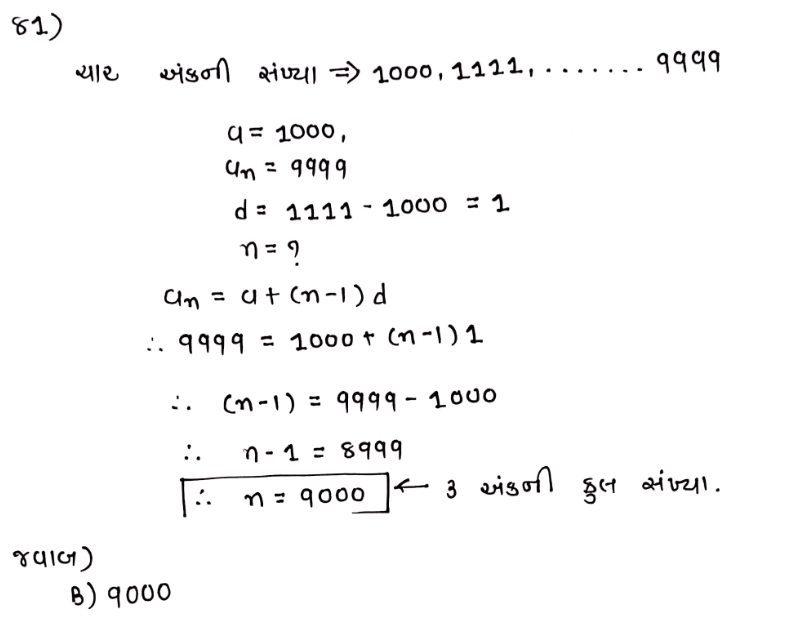 81)
ચાર અંકની સંખ્યા ⇒ 1000, 1111, ....... 9999
a = 1000,
an = 9999
d = 1111 - 1000 = 1
n = ?
an = a + (n-1) d
∴ 9999 = 1000 + (n-1) 1
∴ (n-1) = 9999 - 1000
∴ n - 1 = 8999
∴ n = 9000 ← ૩ અંકની કુલ સંખ્યા.
જવાબ)
B) 9000